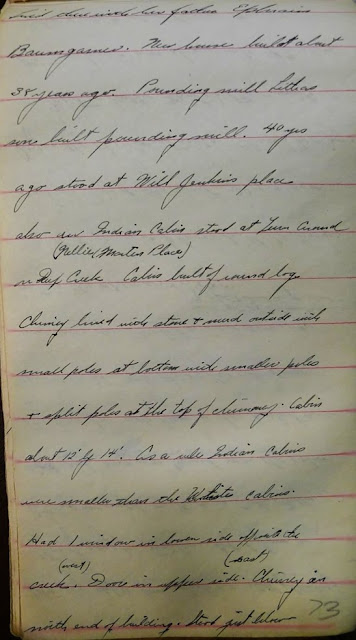 and dies with her father Ephraim
Baumgarner. New house built about
38 years ago. Pounding mill
sons built pounding mill. 40 yrs
ago stood at Will Jenkins place
also Indian Cabin stood at Turn Around
(Nellie Morton Place)
on Deep Creek Cabin built of round logs
Chimney lined with stone & mud outside with
small poles at bottom with smaller poles
& split poles at the top of chimney. Cabin
about 12' by 14'. As a rule Indian Cabins
were smaller than the White's cabins.
Had 1 window in lower side opposite the
(west) (East)
creek. Door in upper side. Chimney on
north end of building. Stood just below
73